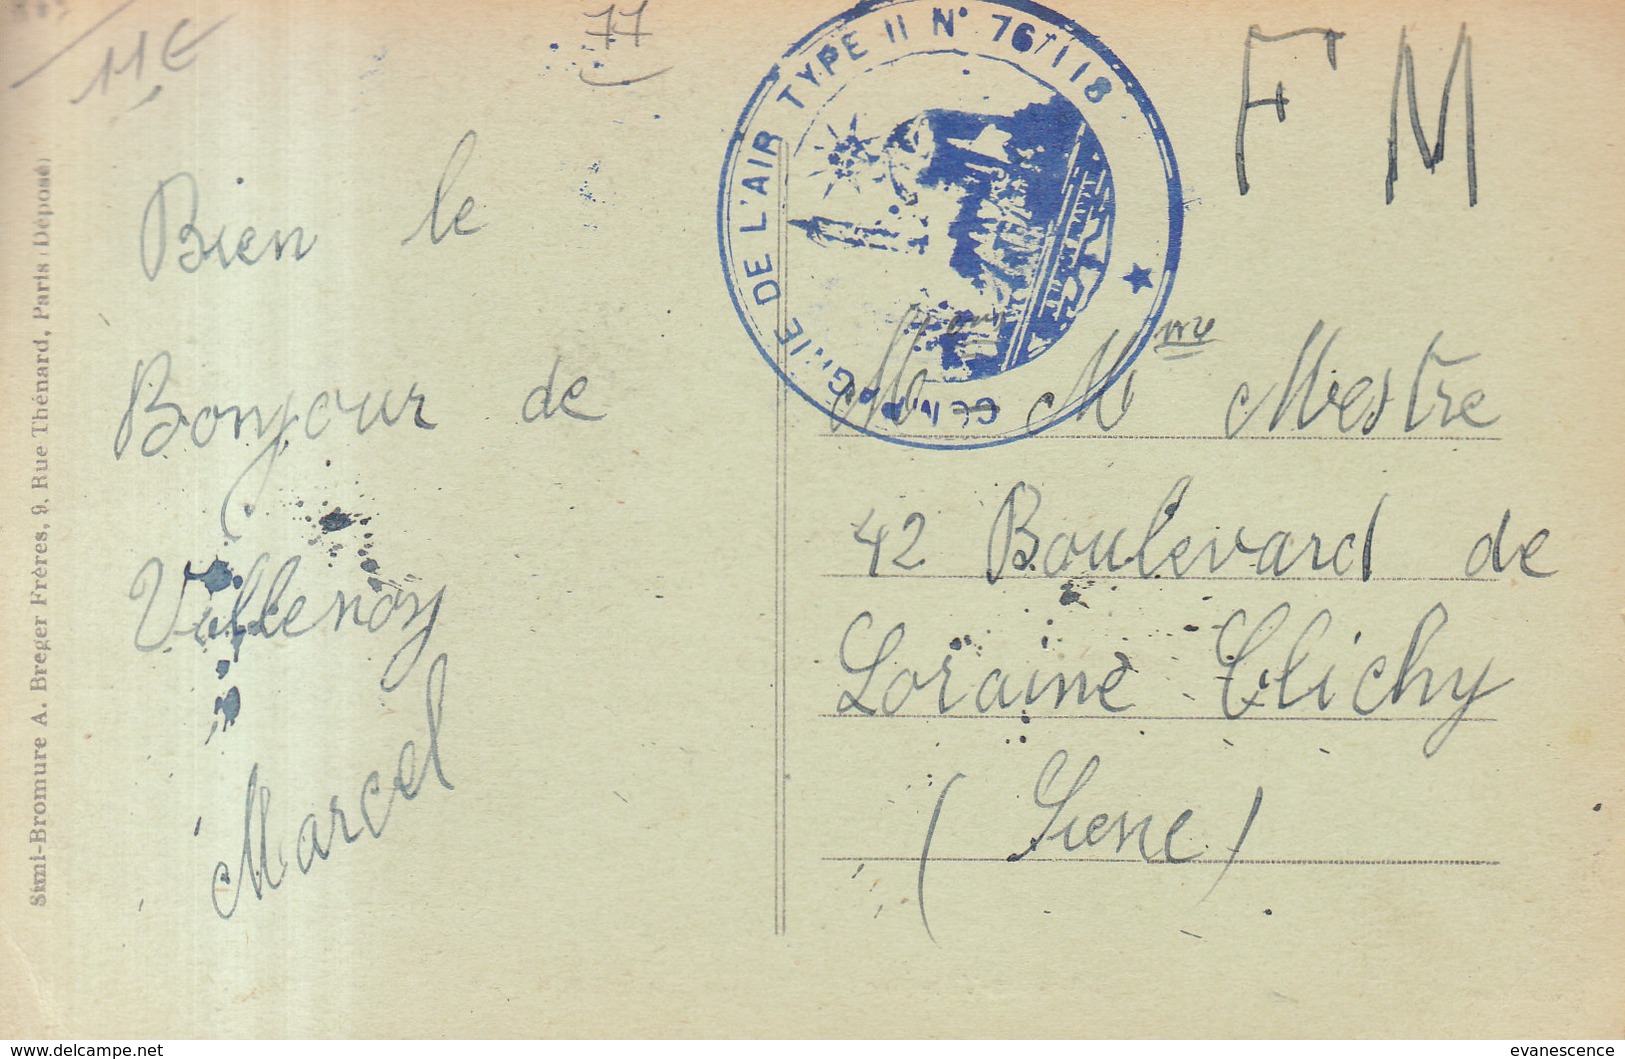 11€
77
F M
COMPAGNIE DE L'AIR TYPE II N° 76/118
Bien le
Bonjour de
Villenoy
Marcel
Mour Mme Mestre
42 Boulevard de
Loraine Clichy
(Siene)
Simi-Bromure A. Breger Frères, 9, Rue Thénard, Paris (Déposé)
www.delcampe.net
evanescence